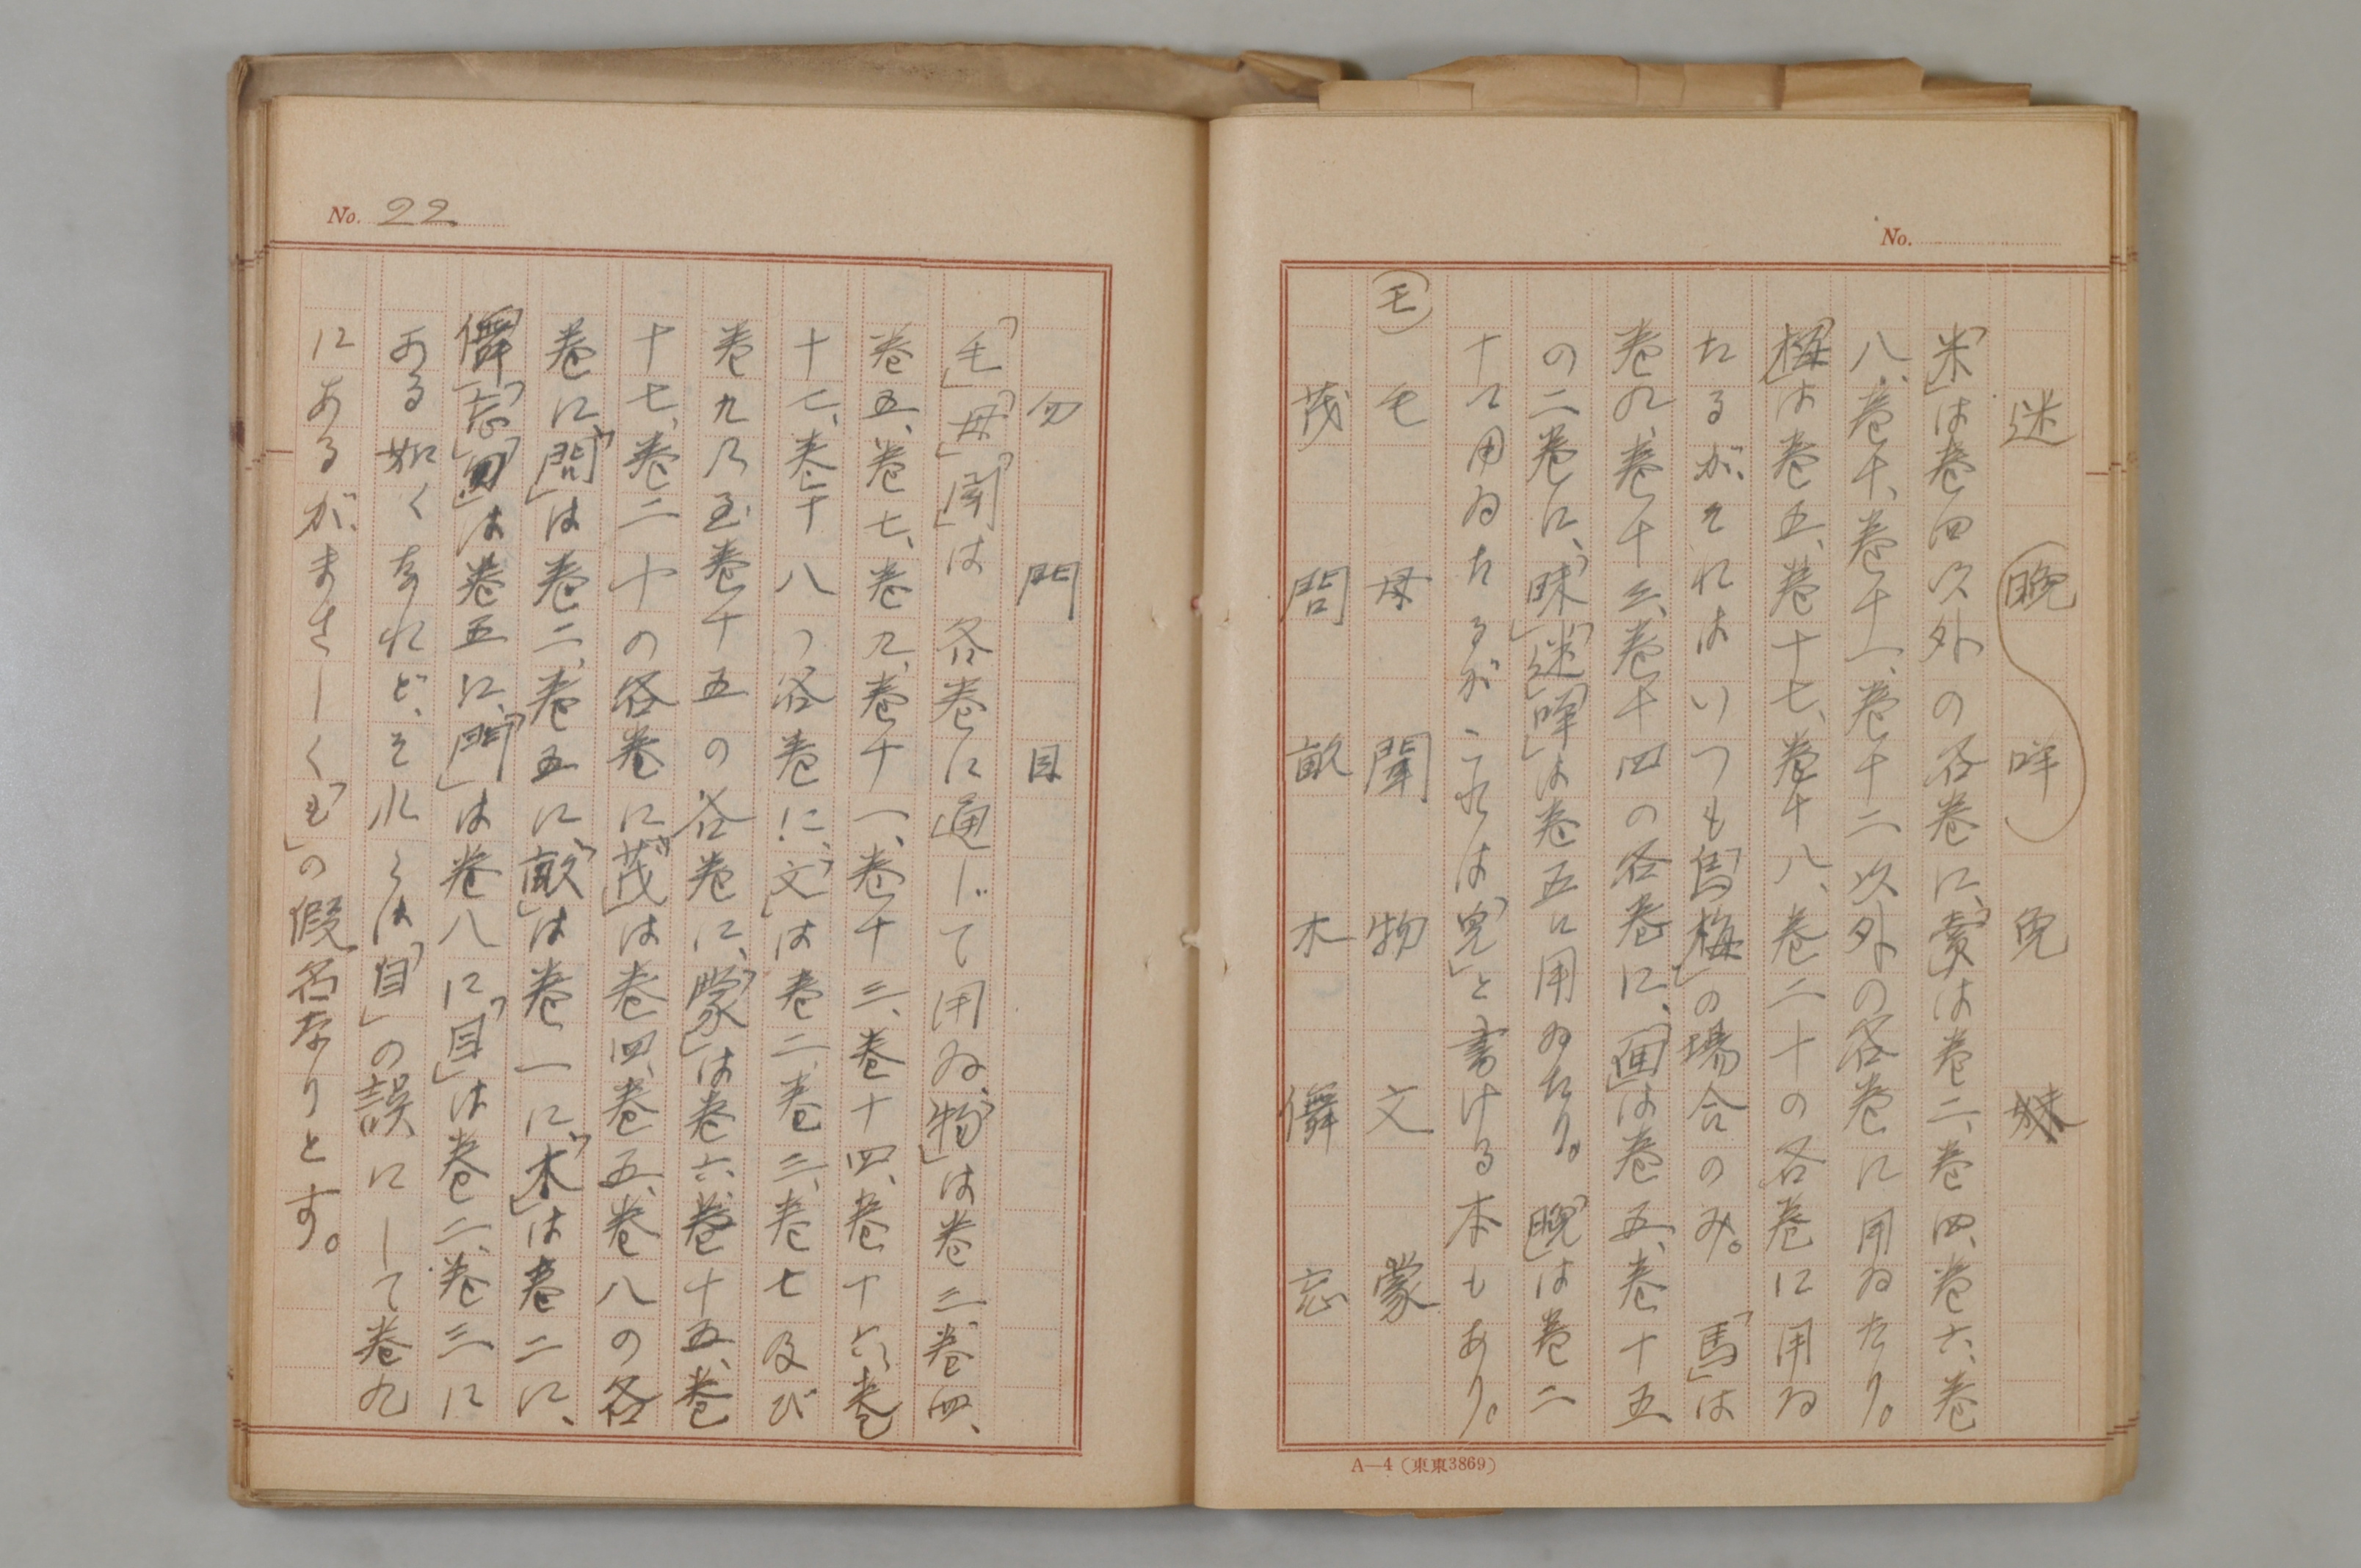 No.
迷 晩 咩 免
「米」は巻四以外の各巻に、「賣」は巻二、巻四、巻六、巻
八、巻十、巻十一、巻十二以外の各巻に用ゐたり。
「梅」は巻五、巻十七、巻十八、巻二十の各巻に用ゐ
たるが、それはいつも「馬梅」の場合のみ。「馬」は
巻九、巻十三、巻十四の各巻に、「面」は巻五、巻十五
の二巻に、「昧」「迷」「咩」は巻五に用ゐたり。「晩」は巻二
十に用ゐたるがこれは「免」と書ける本もあり。
モ 毛 母 聞 物 文 蒙
茂 問 畝 木 儛 忘
A—4(東東3869)
No. 22
勿 門 目
「毛」「母」「聞」は各巻に通じて用ゐ、「物」は巻三、巻四、
巻五、巻七、巻九、巻十一、巻十三、巻十四、巻十六、巻
十七、巻十八の各巻に、「文」は巻二、巻三、巻七及び
巻九乃至巻十五の各巻に、「蒙」は巻六、巻十五、巻
十七、巻二十の各巻に「茂」は巻四、巻五、巻八の各
巻に、「問」は巻二、巻五に、「畝」は巻一に、「木」は巻二に、
「儛」「忘」「勿」は巻五に、「門」は巻八に「目」は巻二、巻三に
ある如くなれど、それらは「目」の誤にして巻九
にあるが、まさしく「も」の假名なりとす。